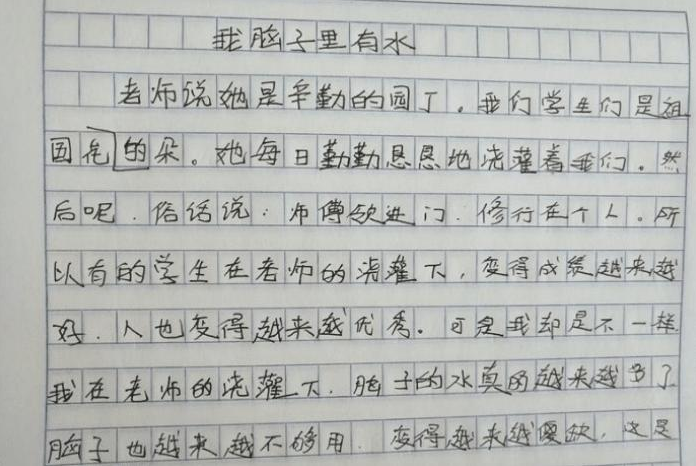 我脑子里有水
老师说她是辛勤的园丁,我们学生们是祖
国花的朵。她每日勤勤恳恳地浇灌着我们。然
后呢,俗话说:师傅领进门,修行在个人。所
以有的学生在老师的浇灌下,变得成绩越来越
好,人也变得越来越优秀。可是我却是不一样
我在老师的浇灌下,脑子的水真的越来越多了
脑子也越来越不够用,变得越来越傻缺,这是